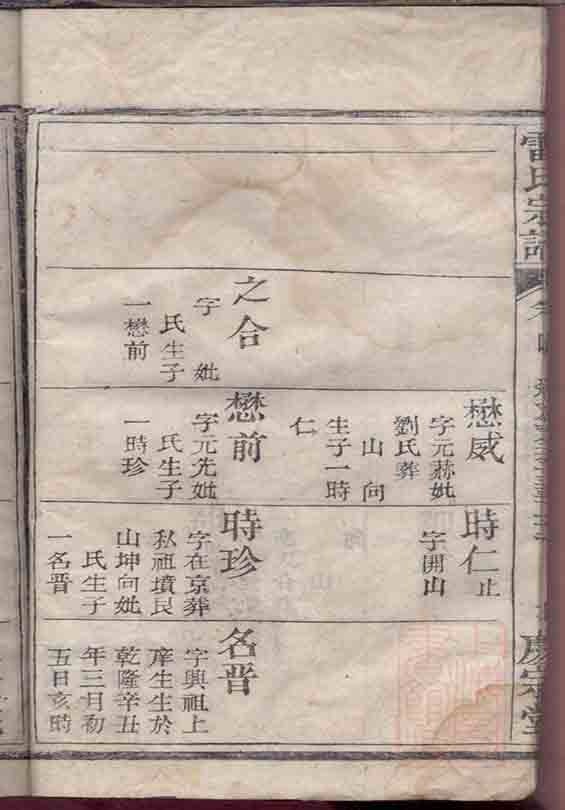 雷氏宗譜
懋威
字元赫妣
劉氏葬
山向
生子一時
仁
時仁止
字開山
之合
字 妣
氏生子
一懋前
懋前
字元先妣
氏生子
一時珍
時珍
字在京葬
私祖墳艮
山坤向妣
氏生子
一名晋
名晋
字興祖上
庠生生於
乾隆辛丑
年三月初
五日亥時